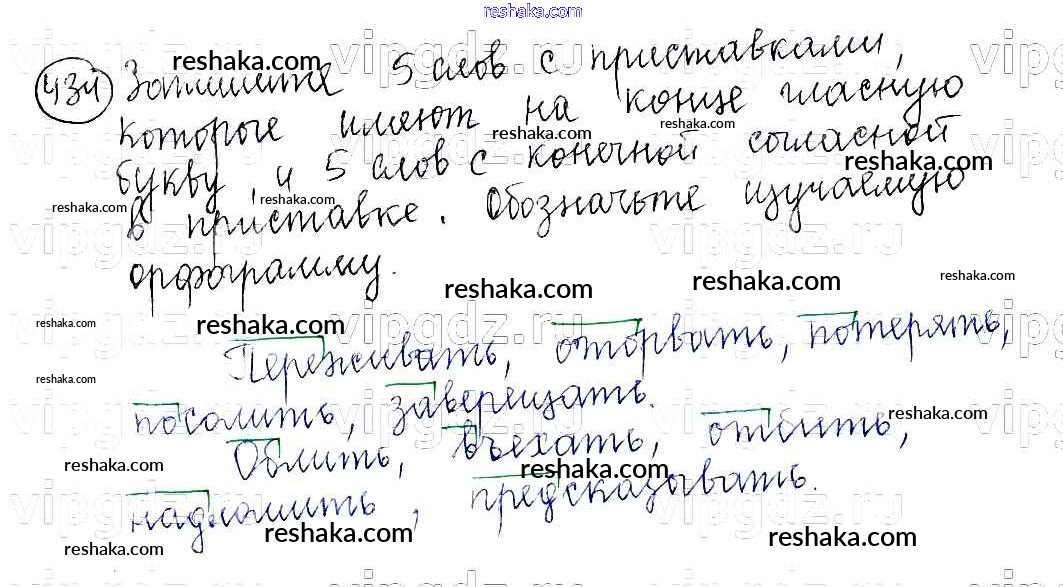 reshaka.com
434 Запишите 5 слов с приставками,
которые имеют на конце гласную
букву, и 5 слов с конечной согласной
в приставке. Обозначьте изучаемую
орфограмму.
Переживать, оторвать, потерять,
посолить, заверещать.
Облить, въехать, отбить,
надломить, предсказывать.